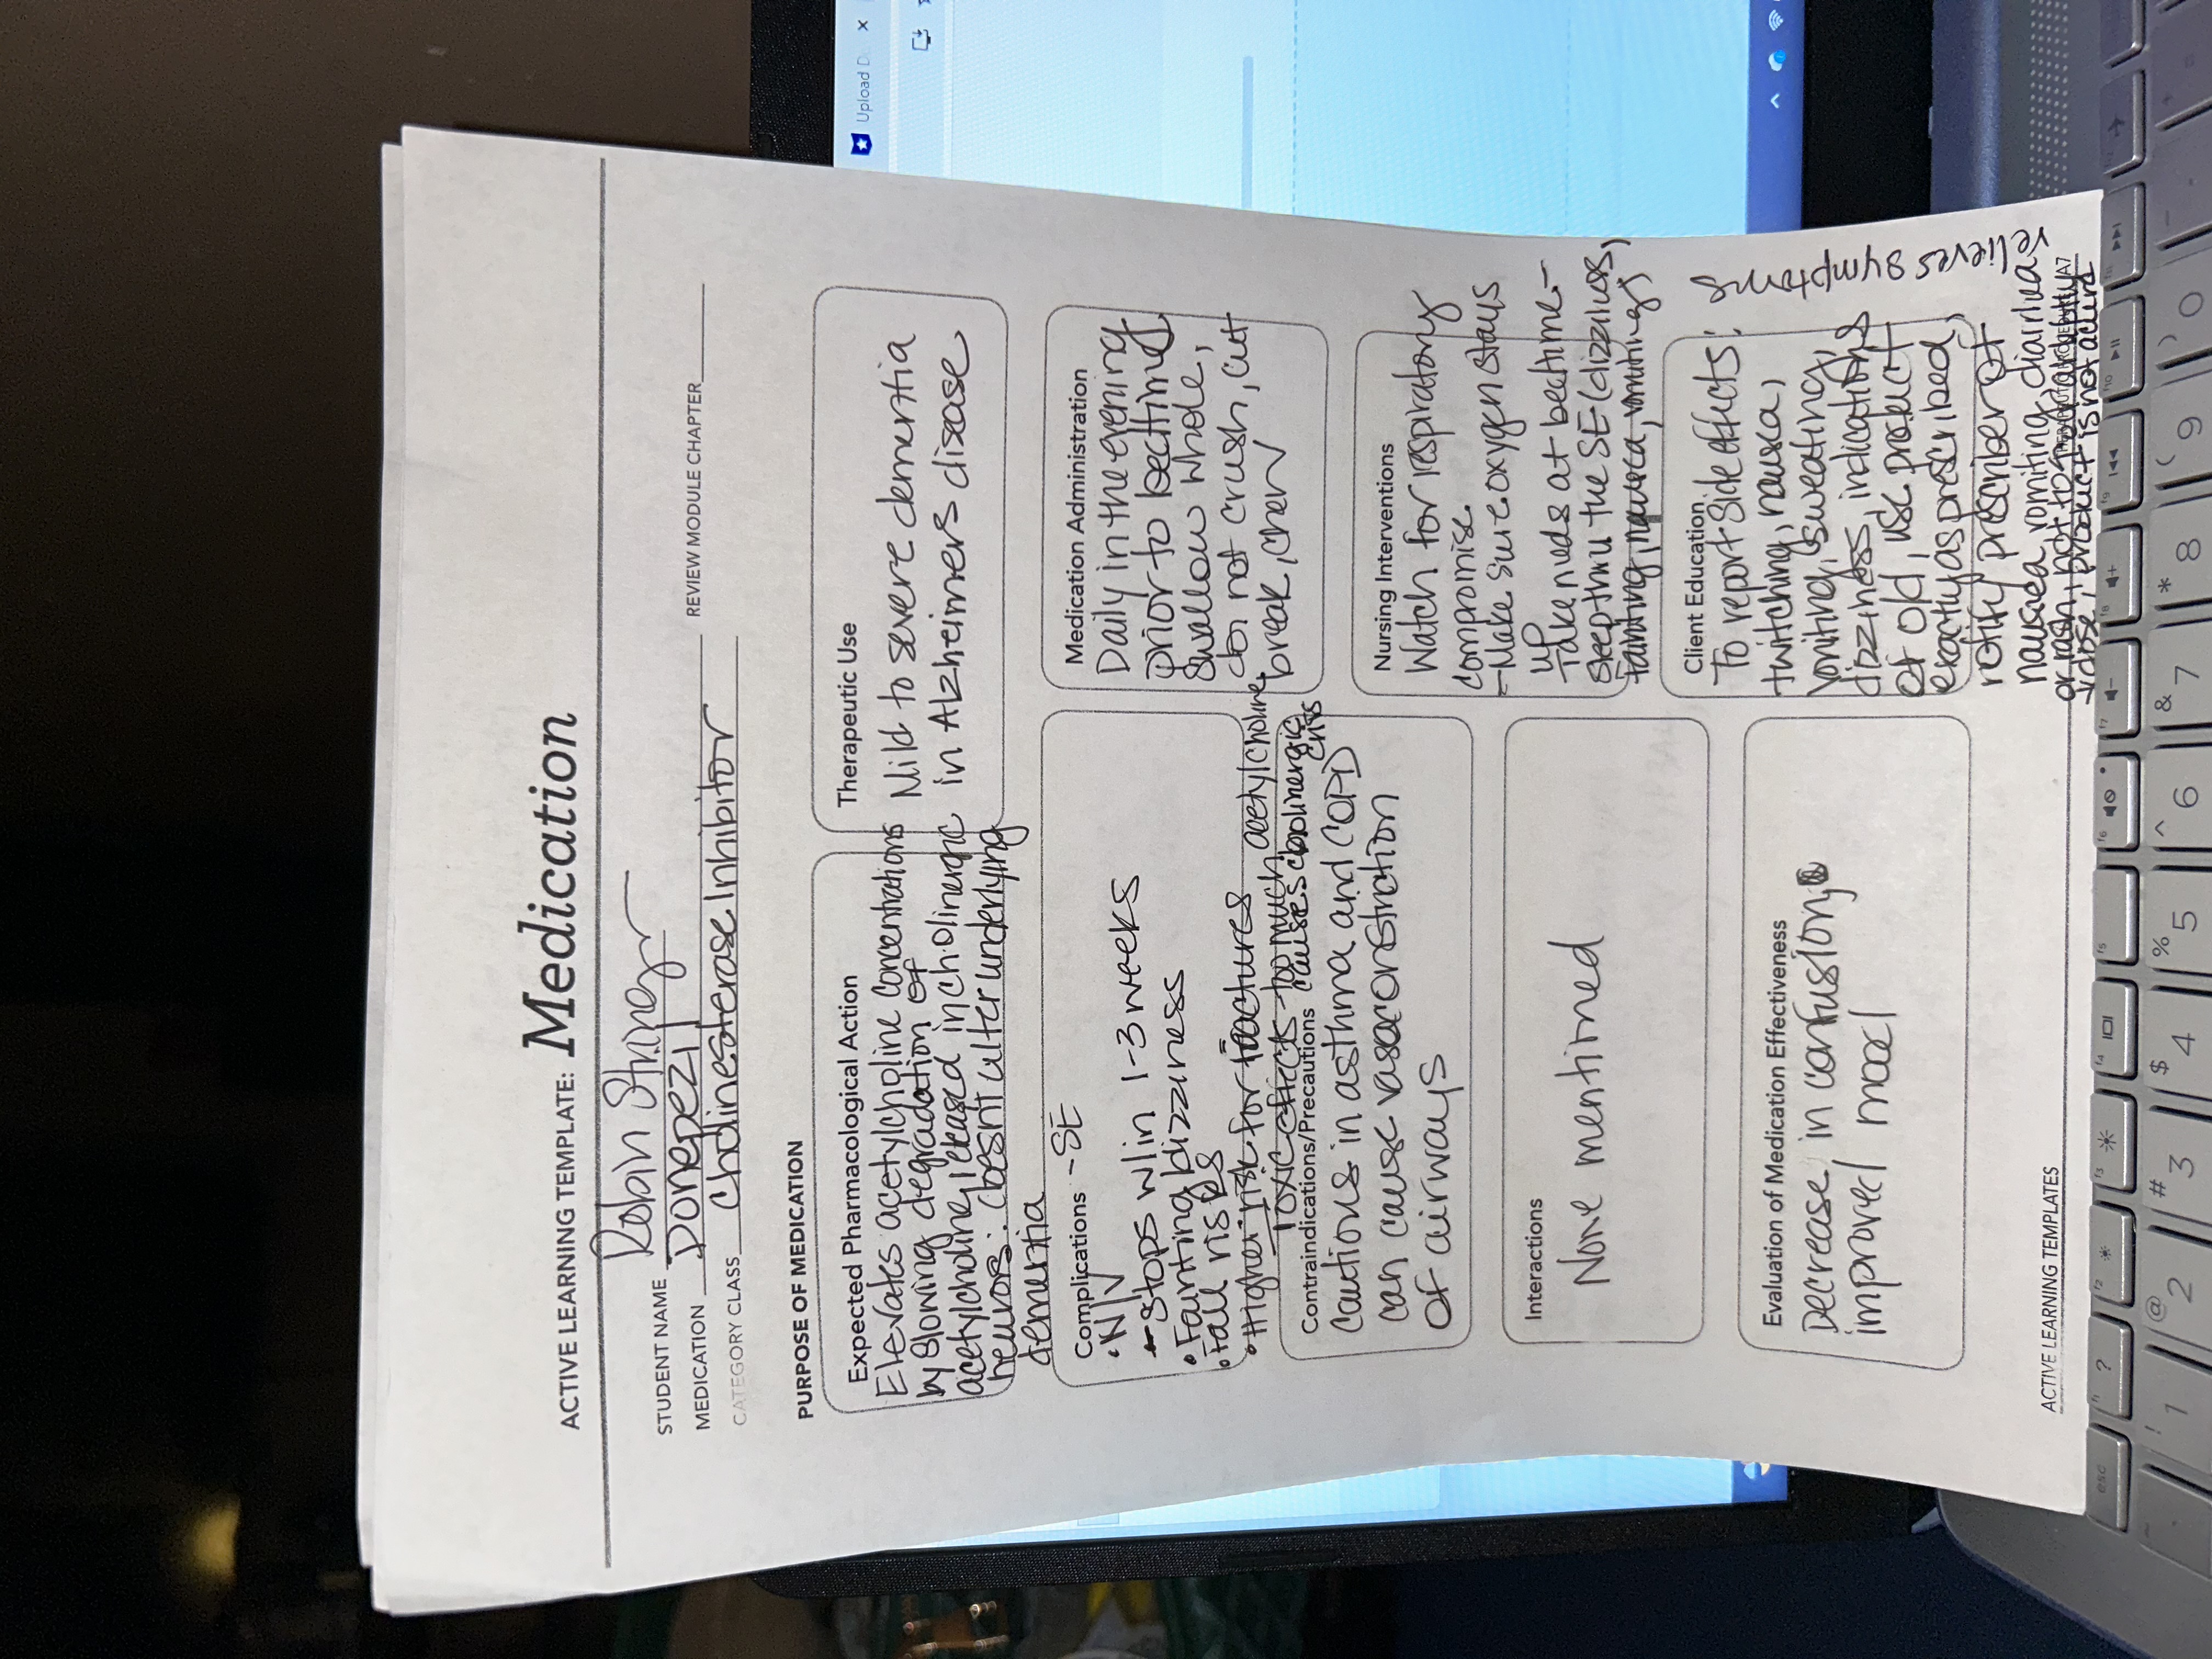 ACTIVE LEARNING TEMPLATE: Medication
STUDENT NAME Robin
MEDICATION Donepezil
REVIEW MODULE CHAPTER
CATEGORY CLASS Cholinesterase Inhibitor
PURPOSE OF MEDICATION
Expected Pharmacological Action
Elevates acetylcholine concentrations
by slowing degradation of
acetylcholine released in cholinergic
neurons. doesn't alter underlying
dementia
Therapeutic Use
Mild to severe dementia
in Alzheimers disease
Complications -SE
• N/V
- Stops w/in 1-3 weeks
• Fainting/dizziness
• Fall risks
• Higher risk for fractures
- Toxic effects - too much acetylcholine
causes cholinergic
crisis
Medication Administration
Daily in the evening
prior to bedtime
Swallow whole,
do not crush, cut
break, chew
Contraindications/Precautions
Cautions in asthma and COPD
can cause vasoconstriction
of airways
Nursing Interventions
Watch for respiratory
compromise
-Make sure oxygen stays
up
-Take meds at bedtime-
sleep thru the SE (dizziness,
fainting, nausea, vomiting)
Interactions
None mentioned
Client Education
To report Side effects:
twitching, nausea,
vomiting, sweating,
dizziness, indications
of OD, use product
exactly as prescribed,
notify prescriber of
nausea, vomiting, diarrhea
or rash, not to
dose, product is not a cure
relieves symptoms
Evaluation of Medication Effectiveness
Decrease in confusion,
improved mood
ACTIVE LEARNING TEMPLATES
A7
Upload D
esc